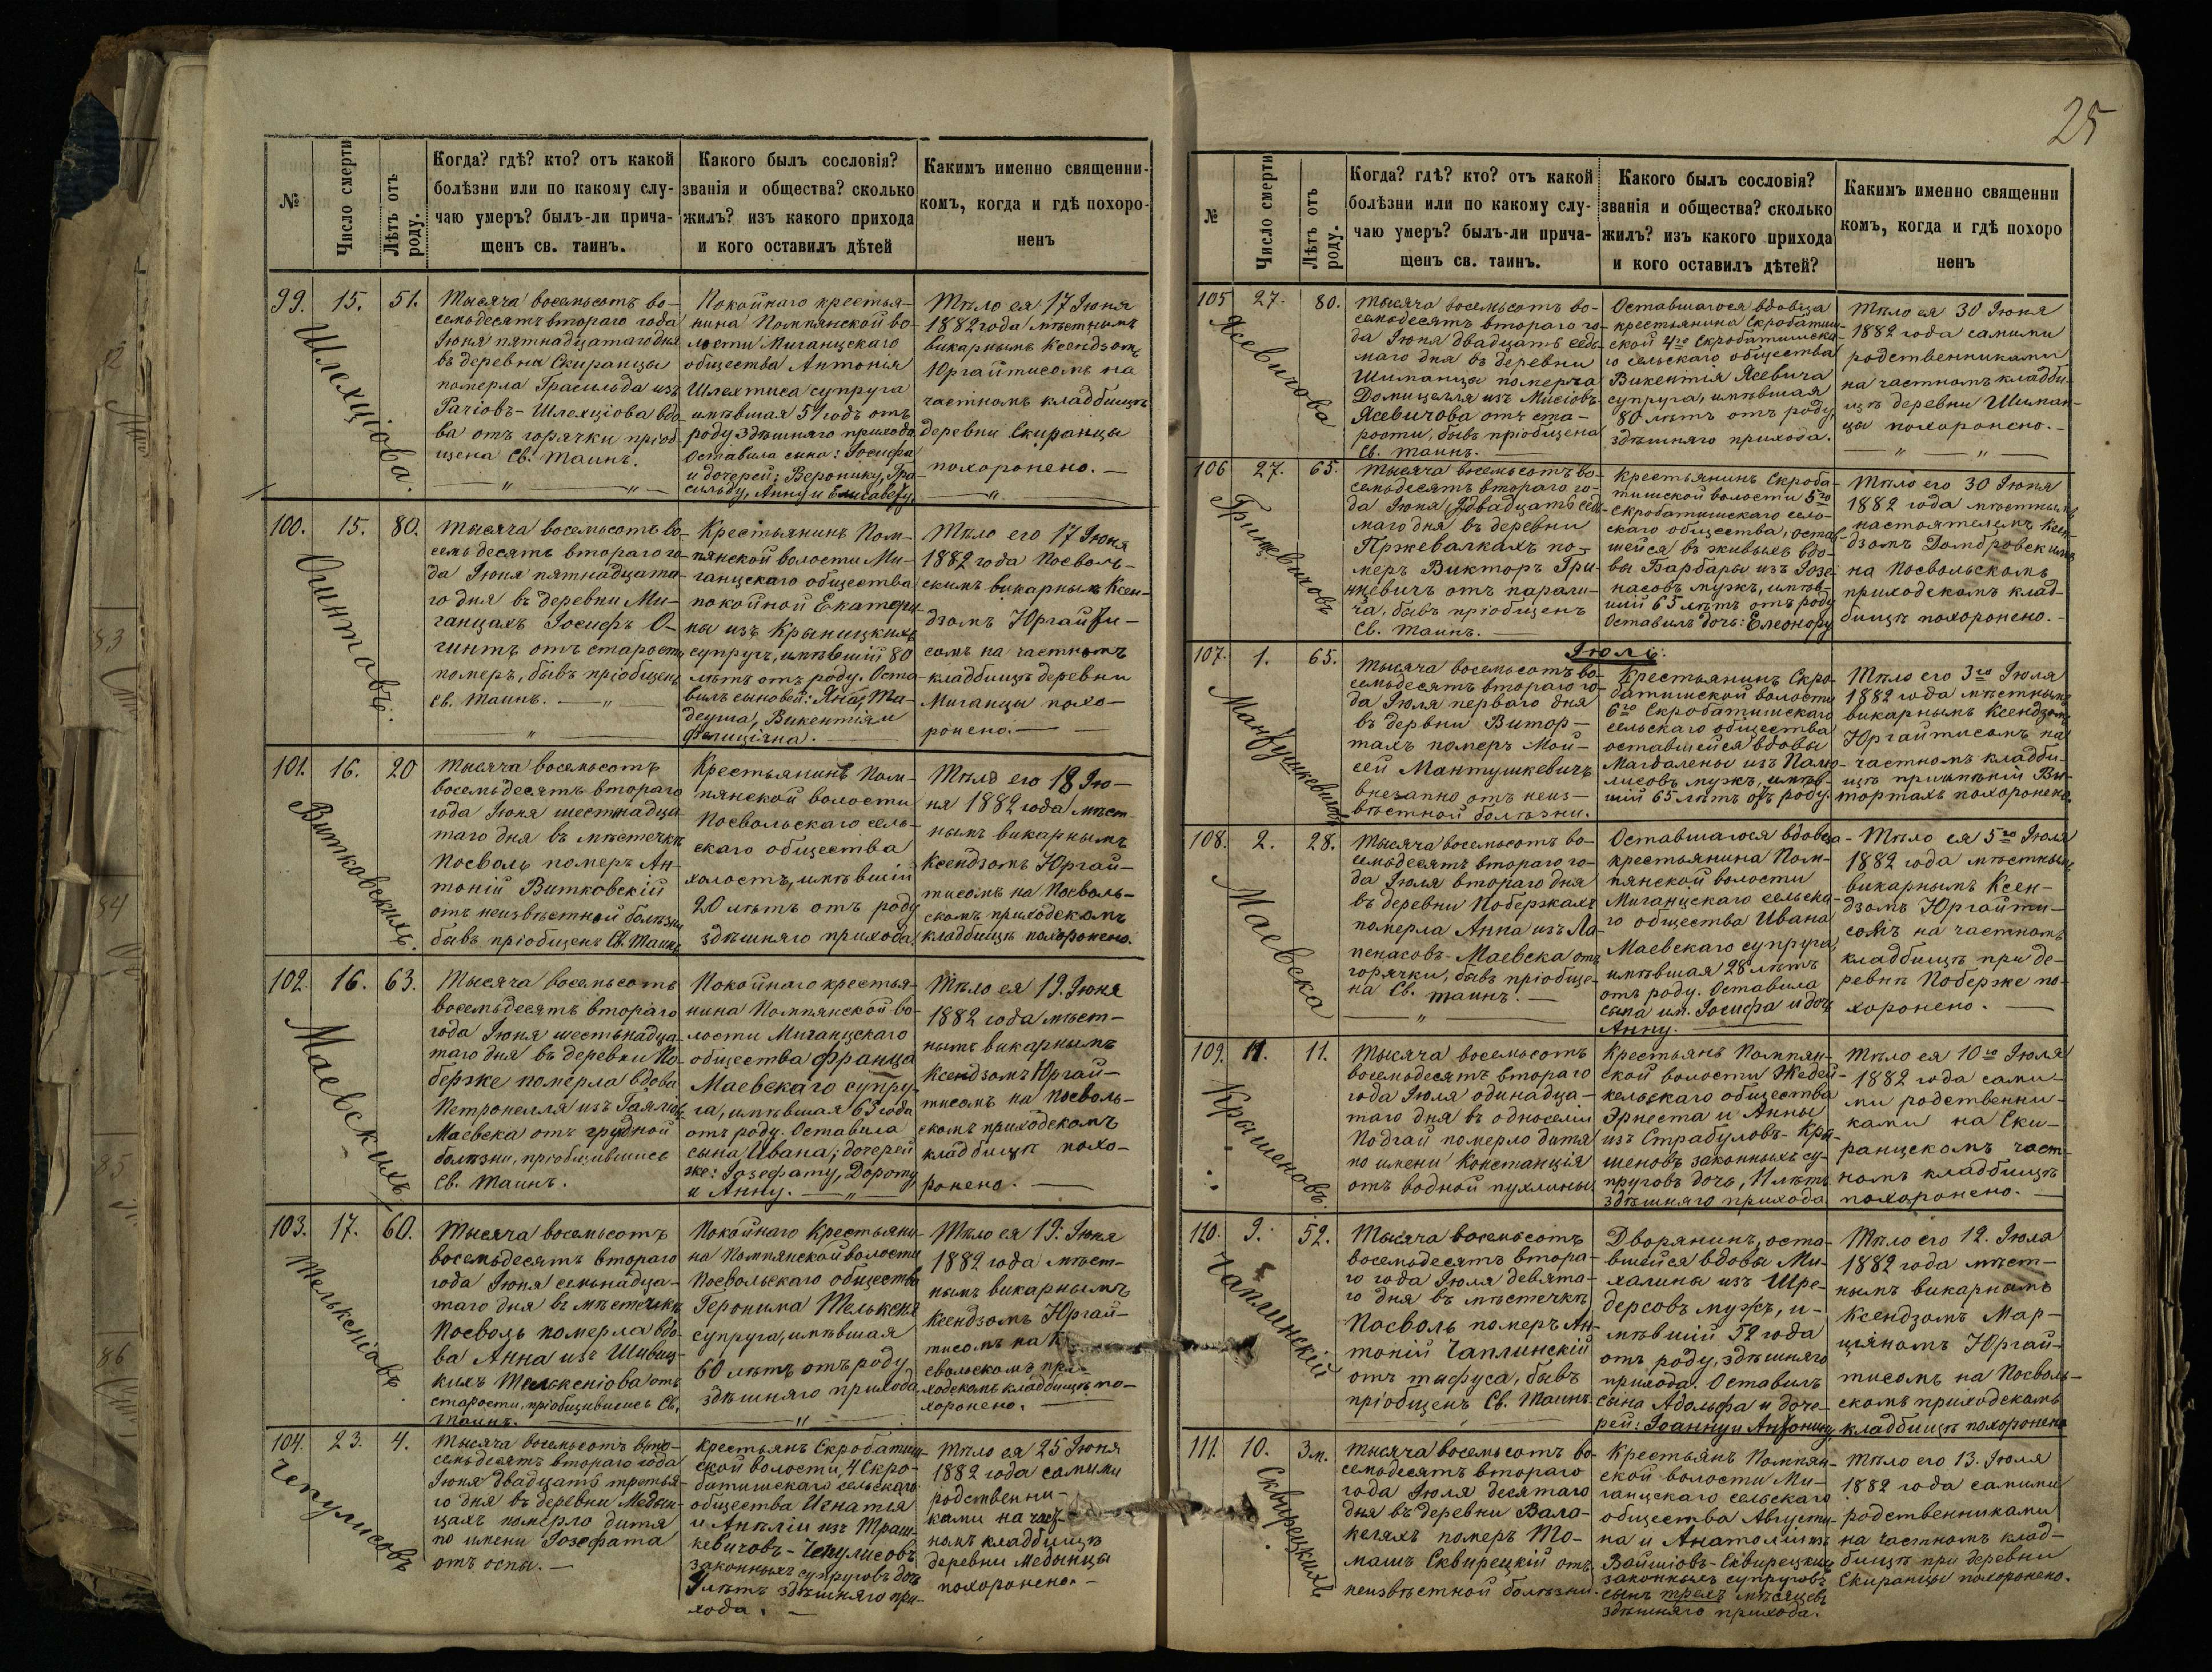 25
№
Число смерти
Лѣтъ отъ роду.
Когда? гдѣ? кто? отъ какой
болѣзни или по какому слу-
чаю умеръ? былъ-ли прича-
щенъ св. таинъ.
Какого былъ сословія?
званія и общества? сколько
жилъ? изъ какого прихода
и кого оставилъ дѣтей
Какимъ именно священни-
комъ, когда и гдѣ похоро-
ненъ
99. 15. 51.
Шлехціова.
Тысяча восемьсотъ во-
семьдесятъ втораго года
Іюня пятнадцатаго дня
въ деревни Скиранцы
померла Грасильда изъ
Рачіовъ-Шлехціова вдо-
ва отъ горячки пріоб-
щена Св. Таинъ.
Покойнаго крестья-
нина Помпянской во-
лости Миганцскаго
общества Антонія
Шлехтиса супруга
имѣвшая 51 годъ отъ
роду здѣшняго прихода.
Оставила сына: Іосифа
и дочерей: Веронику, Гра-
сильду, Анну и Елисавету.
Тѣло ея 17 Іюня
1882 года мѣстнымъ
викарнымъ Ксендзомъ
Юргайтисомъ на
частномъ кладбищѣ
деревни Скиранцы
похоронено. —
100. 15. 80.
Огинтовъ.
Тысяча восемьсотъ во-
семьдесятъ втораго го-
да Іюня пятнадцата-
го дня въ деревни Ми-
ганцахъ Іосифъ О-
гинтъ отъ старости
померъ, бывъ пріобщенъ
Св. Таинъ.
Крестьянинъ Пом-
пянской волости Ми-
ганцскаго общества
покойной Екатери-
ны изъ Крыницкихъ
супругъ, имѣвшій 80
лѣтъ отъ роду. Оста-
вилъ сыновей: Яна, Та-
деуша, Викентія и
Фелиціяна.
Тѣло его 17 Іюня
1882 года Посволь-
скимъ викарнымъ Ксен-
дзомъ Юргайти-
сомъ на частномъ
кладбищѣ деревни
Миганцы похо-
ронено. —
101. 16. 20
Витковскихъ.
Тысяча восемьсотъ
восемьдесятъ втораго
года Іюня шестнадца-
таго дня въ мѣстечкѣ
Посволь померъ Ан-
тоній Витковскій
отъ неизвѣстной болѣзни
бывъ пріобщенъ Св. Таинъ
Крестьянинъ Пом-
пянской волости
Посвольскаго сель-
скаго общества
холостъ, имѣвшій
20 лѣтъ отъ роду
здѣшняго прихода.
Тѣло его 18 Ію-
ня 1882 года мѣст-
нымъ викарнымъ
Ксендзомъ Юргай-
тисомъ на Посволь-
скомъ приходскомъ
кладбищѣ похоронено.
102. 16. 63.
Маевскихъ
Тысяча восемьсотъ
восемьдесятъ втораго
года Іюня шестьнадца-
таго дня въ деревни По-
берже померла вдова
Петронелля изъ
Маевска отъ грудной
болѣзни, пріобщившись
Св. Таинъ.
Покойнаго крестья-
нина Помпянской во-
лости Миганцскаго
общества Франца
Маевскаго супру-
га, имѣвшая 63 года
отъ роду. Оставила
сына Ивана; дочерей
же: Іозефату, Дороту
и Анну.
Тѣло ея 19. Іюня
1882 года мѣст-
нымъ викарнымъ
Ксендзомъ Юргай-
тисомъ на Посволь-
скомъ приходскомъ
кладбищѣ похо-
ронено. —
103. 17. 60.
Мелькеніовъ
Тысяча восемьсотъ
восемьдесятъ втораго
года Іюня семьнадца-
таго дня въ мѣстечкѣ
Посволь померла вдо-
ва Анна изъ
кихъ Мелькеніова отъ
старости, пріобщившись Св.
Таинъ.
Покойнаго Крестьяни-
на Помпянской волости
Посвольскаго общества
Геронима
супруга, имѣвшая
60 лѣтъ отъ роду
здѣшняго прихода
Тѣло ея 19. Іюня
1882 года мѣст-
нымъ викарнымъ
Ксендзомъ Юргай-
тисомъ на
свольскомъ при-
ходскомъ кладбищѣ по-
хоронено.
104. 23. 4.
Чепулисовъ
Тысяча восемьсотъ во-
семьдесятъ втораго года
Іюня двадцать третья-
го дня въ деревни Медын-
цахъ померло дитя
по имени Іозефата
отъ оспы. —
Крестьянъ Скробатиш-
ской волости, 4 Скро-
батишскаго сельскаго
общества Игнатія
и Анѣліи изъ Траш-
кевичовъ-Чепулисовъ
законныхъ супруговъ дочь
4 лѣтъ здѣшняго при-
хода. —
Тѣло ея 25 Іюня
1882 года самими
родственни-
ками на част-
номъ кладбищѣ
деревни Медынцы
похоронено. —
№
Число смерти
Лѣтъ отъ роду.
Когда? гдѣ? кто? отъ какой
болѣзни или по какому слу-
чаю умеръ? былъ-ли прича-
щенъ св. таинъ.
Какого былъ сословія?
званія и общества? сколько
жилъ? изъ какого прихода
и кого оставилъ дѣтей?
Какимъ именно священни
комъ, когда и гдѣ похоро
ненъ
105 27. 80.
Ясевичова
Тысяча восемьсотъ во-
семьдесятъ втораго го-
да Іюня двадцать седь-
маго дня въ деревни
Шиманцы померла
Домицелля изъ Мисіовъ-
Ясевичова отъ ста-
рости, бывъ пріобщена
Св. Таинъ. —
Оставшагося вдовца
крестьянина Скробатиш-
ской 4го Скробатишска-
го сельскаго общества
Викентія Ясевича
супруга, имѣвшая
80 лѣтъ отъ роду
здѣшняго прихода.
Тѣло ея 30 Іюня
1882 года самими
родственниками
на частномъ кладби-
щѣ деревни Шиман-
цы похоронено. —
106 27. 65.
Грицевичовъ
Тысяча восемьсотъ во-
семьдесятъ втораго го-
да Іюня двадцать седь-
маго дня въ деревни
Пржевалкахъ по-
меръ Викторъ Гри-
цкевичъ отъ парали-
ча, бывъ пріобщенъ
Св. Таинъ. —
Крестьянинъ Скроба-
тишской волости 5го
Скробатишскаго сель-
скаго общества, остав-
шейся въ живыхъ вдо-
вы Барбары изъ Іозе-
насовъ мужъ, имѣв-
шій 65 лѣтъ отъ роду
Оставилъ дочь: Елеонору
Тѣло его 30 Іюня
1882 года мѣстнымъ
настоятелемъ Ксен-
дзомъ Домбровскимъ
на Посвольскомъ
приходскомъ клад-
бищѣ похоронено. —
Іюль.
107. 1. 65.
Мантушкевичовъ
Тысяча восемьсотъ во-
семьдесятъ втораго го-
да Іюля перваго дня
въ дервни Витор-
тахъ померъ Мой-
сей Мантушкевичъ
внезапно отъ неиз-
вѣстной болѣзни.
Крестьянинъ Скро-
батишской волости
6го Скробатишскаго
сельскаго общества
оставшейся вдовы
Магдалены изъ
лисовъ мужъ, имѣв-
шій 65 лѣтъ отъ роду.
Тѣло его 3го Іюля
1882 года мѣстнымъ
викарнымъ Ксендзомъ
Юргайтисомъ на
частномъ кладби-
щѣ при имѣніи Ви-
тортахъ похоронено.
108. 2. 28.
Маевска
Тысяча восемьсотъ во-
семьдесятъ втораго го-
да Іюля втораго дня
въ деревни Побержахъ
померла Анна изъ Ла-
пенасовъ-Маевска отъ
горячки, бывъ пріобще-
на Св. Таинъ. —
Оставшагося вдовца
крестьянина Пом-
пянской волости
Миганцскаго сельска-
го общества Ивана
Маевскаго супруга,
имѣвшая 28 лѣтъ
отъ роду. Оставила
сына им. Іосифа и дочь
Анну.
Тѣло ея 5го Іюля
1882 года мѣстнымъ
викарнымъ Ксен-
дзомъ Юргайти-
сомъ на частномъ
кладбищѣ при де-
ревни Поберже по-
хоронено. —
109. 11. 11.
Крышеновъ.
Тысяча восемьсотъ
восемьдесятъ втораго
года Іюля одинадца-
таго дня въ односеліи
Подгай померло дитя
по имени Констанція
отъ водной пухлины.
Крестьянъ Помпян-
ской волости Жедей-
кельскаго общества
Эрнеста и Анны
изъ Страбуловъ-Кры-
шеновъ законныхъ су-
пруговъ дочь, 11 лѣтъ
здѣшняго прихода.
Тѣло ея 10го Іюля
1882 года сами-
ми родственни-
ками на Ски-
ранцскомъ част-
номъ кладбищѣ
похоронено. —
110. 9. 52.
Чаплинскій
Тысяча восемьсотъ
восемьдесятъ втора-
го года Іюля девята-
го дня въ мѣстечкѣ
Посволь померъ Ан-
тоній Чаплинскій
отъ тыфуса, бывъ
пріобщенъ Св. Таинъ.
Дворянинъ, оста-
вшейся вдовы Ми-
халины изъ Шре-
дерсовъ мужъ, и-
мѣвшій 52 года
отъ роду, здѣшняго
прихода. Оставилъ
сына Адольфа и доче-
рей: Іоанну и Антонину
Тѣло его 12. Іюля
1882 года мѣст-
нымъ викарнымъ
Ксендзомъ Мар-
ціяномъ Юргай-
тисомъ на Посволь-
скомъ приходскомъ
кладбищѣ похоронено
111. 10. 3 м.
Сквирецкихъ
Тысяча восемьсотъ во-
семьдесятъ втораго
года Іюля десятаго
дня въ деревни Вала-
келяхъ померъ То-
машъ Сквирецкій отъ
неизвѣстной болѣзни.
Крестьянъ Помпян-
ской волости Ми-
ганцскаго сельскаго
общества Августи-
на и Анатоліи изъ
Сквирецкихъ
законныхъ супруговъ
сынъ трехъ мѣсяцевъ
здѣшняго прихода.
Тѣло его 13. Іюля
1882 года самими
родственниками
на частномъ клад-
бищѣ при деревни
Скиранцы похоронено.